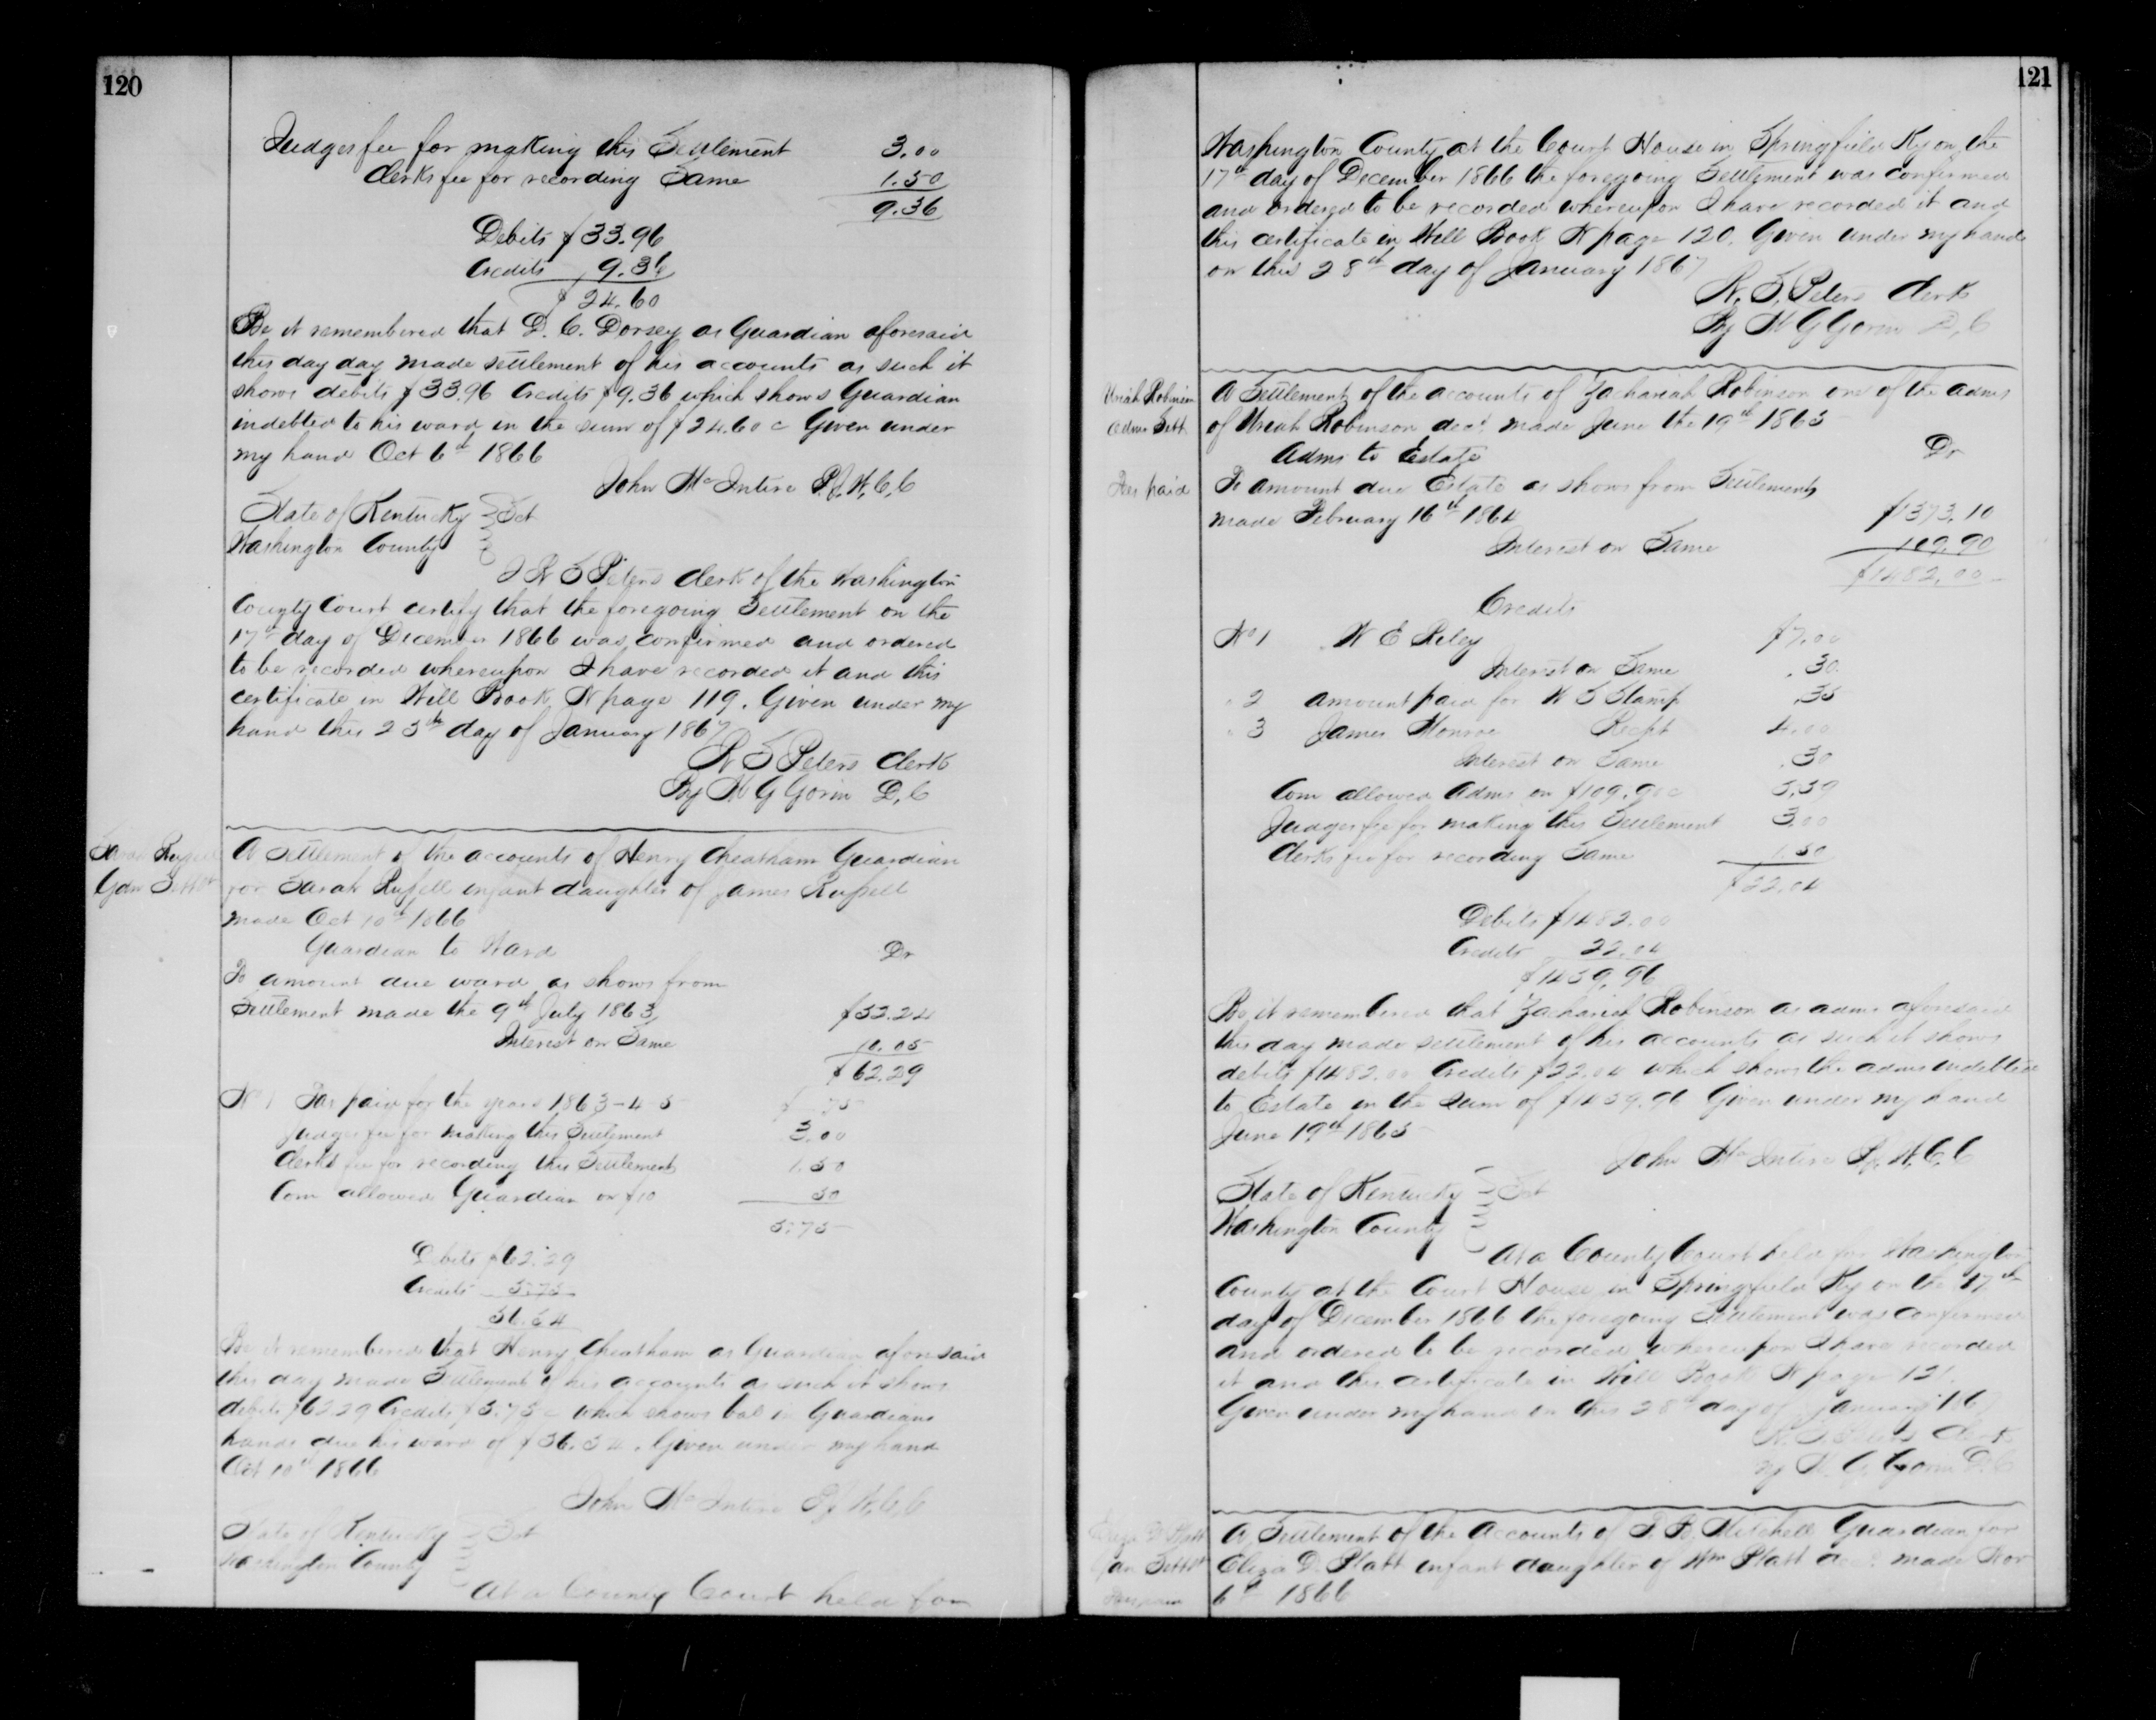 120
Judges fee for making this Settlement 3.00
Clerks fee for recording Same 1.50
9.36
Debits $33.96
Credits 9.36
$24.60
Be it remembered that D. C. Dorsey as Guardian aforesaid
this day day made settlement of his accounts as such it
shows debits $33.96 Credits $9.36 which shows Guardian
indebted to his ward in the sum of $24.60c Given under
my hand Oct 6th 1866
John McIntire P.J.W.C.C
State of Kentucky Sct
Washington County
I W S Peters Clerk of the Washington
County Court certify that the foregoing Settlement on the
17th day of December 1866 was confirmed and ordered
to be recorded whereupon I have recorded it and this
certificate in Will Book N page 119. Given under my
hand this 25th day of January 1867
W S Peters Clerk
By W G Gorin D,C
Sarah
Gdn Settlt
A Settlement of the accounts of Henry Cheatham Guardian
for Sarah Russell infant daughter of James Russell
made Oct 10th 1866
Guardian to Ward Dr
To amount due ward as shows from
Settlement made the 9th July 1863 $52.24
Interest on Same 10.05
$62.29
No 1 Tax paid for the years 1863-4-5 $ .75
Judges fee for making this Settlement 3.00
Clerks fee for recording this Settlement 1.50
Com allowed Guardian on $10 50
5.75
Debits $62.29
Credits 5.75
56.54
Be it remembered that Henry Cheatham as Guardian aforesaid
this day made Settlement of his accounts as such it shows
debits $62.29 Credits $5.75c which shows bal in Guardians
hands due his ward of $56.54. Given under my hand
Oct 10th 1866
John McIntire P.J.W.C.C
State of Kentucky Sct
Washington County
At a County Court held for
121
Washington County at the Court House in Springfield Ky on the
17th day of December 1866 the foregoing Settlement was confirmed
and ordered to be recorded whereupon I have recorded it and
this certificate in Will Book N page 120. Given under my hand
on this 28th day of January 1867
W. S. Peters Clerk
By W G Gorin D,C
Uriah Robinson
Adms Sett
Fees paid
A Settlement of the accounts of Zachariah Robinson one of the adms
of Uriah Robinson decd made June the 19th 1865
Adms to Estate Dr
To amount due Estate as shows from Settlements
made February 16th 1864 $1373.10
Interest on Same 109.90
$1482.00
Credits
No 1 W E Riley $7.00
Interest on Same .30
" 2 amount paid for U S Stamp .35
" 3 James Monroe Recpt 4.00
Interest on Same .30
Com allowed Adms on $109.90c 5.59
Judges fee for making this Settlement 3.00
Clerks fee for recording Same 1.50
$22.04
Debits $1482.00
Credits 22.04
$1459.96
Be it remembered that Zachariah Robinson as adms aforesaid
this day made settlement of his accounts as such it shows
debits $1482.00 Credits $22.04 which shows the adms indebted
to Estate in the Sum of $1459.96 Given under my hand
June 19th 1865
John McIntire P.J.W.C.C
State of Kentucky Sct
Washington County
At a County Court held for Washington
County at the Court House in Springfield Ky on the 17th
day of December 1866 the foregoing Settlement was confirmed
and ordered to be recorded whereupon I have recorded
it and this certificate in Will Book N page 121.
Given under my hand on this 28th day of January
W. S. Peters Clerk
By W. G. Gorin D.C
Eliza D Platt
Gdn Settlt
A Settlement of the accounts of Mitchell Guardian for
Eliza D. Platt infant daughter of Wm Platt decd. made Nov
6th 1866